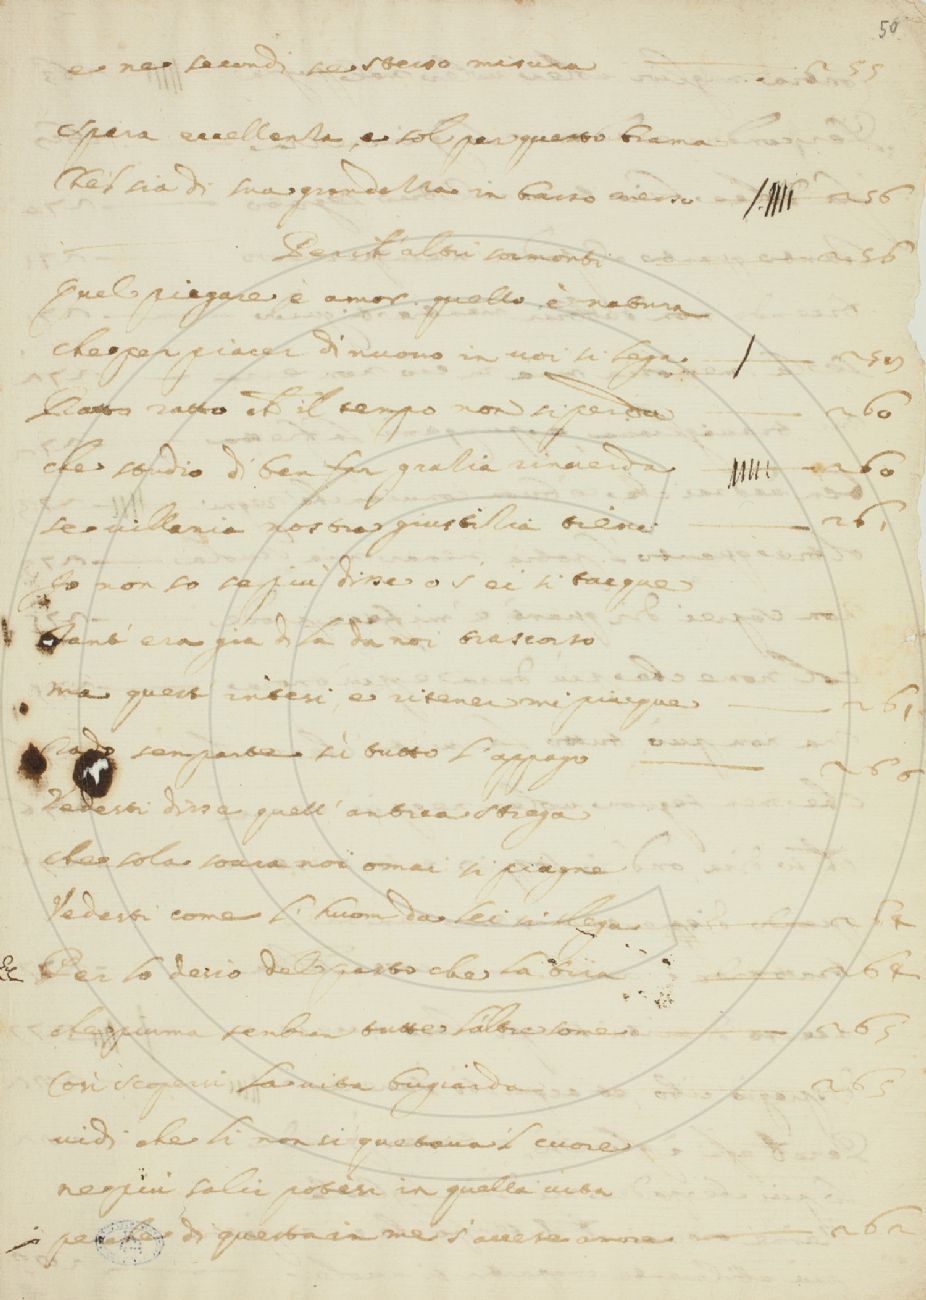 50
e ne secondi se stesso misura 255
spera eccellenza, e sol per questo brama
Ch'el sia di sua grandezza in basso messo 256
Perch' altri sormonti 256
Quel piegare è amor quello è natura
che per piacer di nuovo in voi si lega 259
Ratto ratto ch' il tempo non si perda 260
che studio di ben far grazia rinverda 260
se villania nostra giustizia tieni 261
Io non so se più disse o s' ei si tacque
tant' era già di là da noi trascorso
ma questo intesi, e ritener mi piacque 261
sì tutto l'appago 266
Vedesti disse quell' antica strega
che sola sovra noi omai si piagne
Vedesti come l' huom da lei si slega 264
Per lo desio del pasto che la tira 264
che piuma senbran tutte l'altre some 265
Così scopersi la vita bugiarda 265
vidi che lì non si quetava 'l cuore
ne più salir potesi in quella vita
perche di questa in me s'accese amore 262